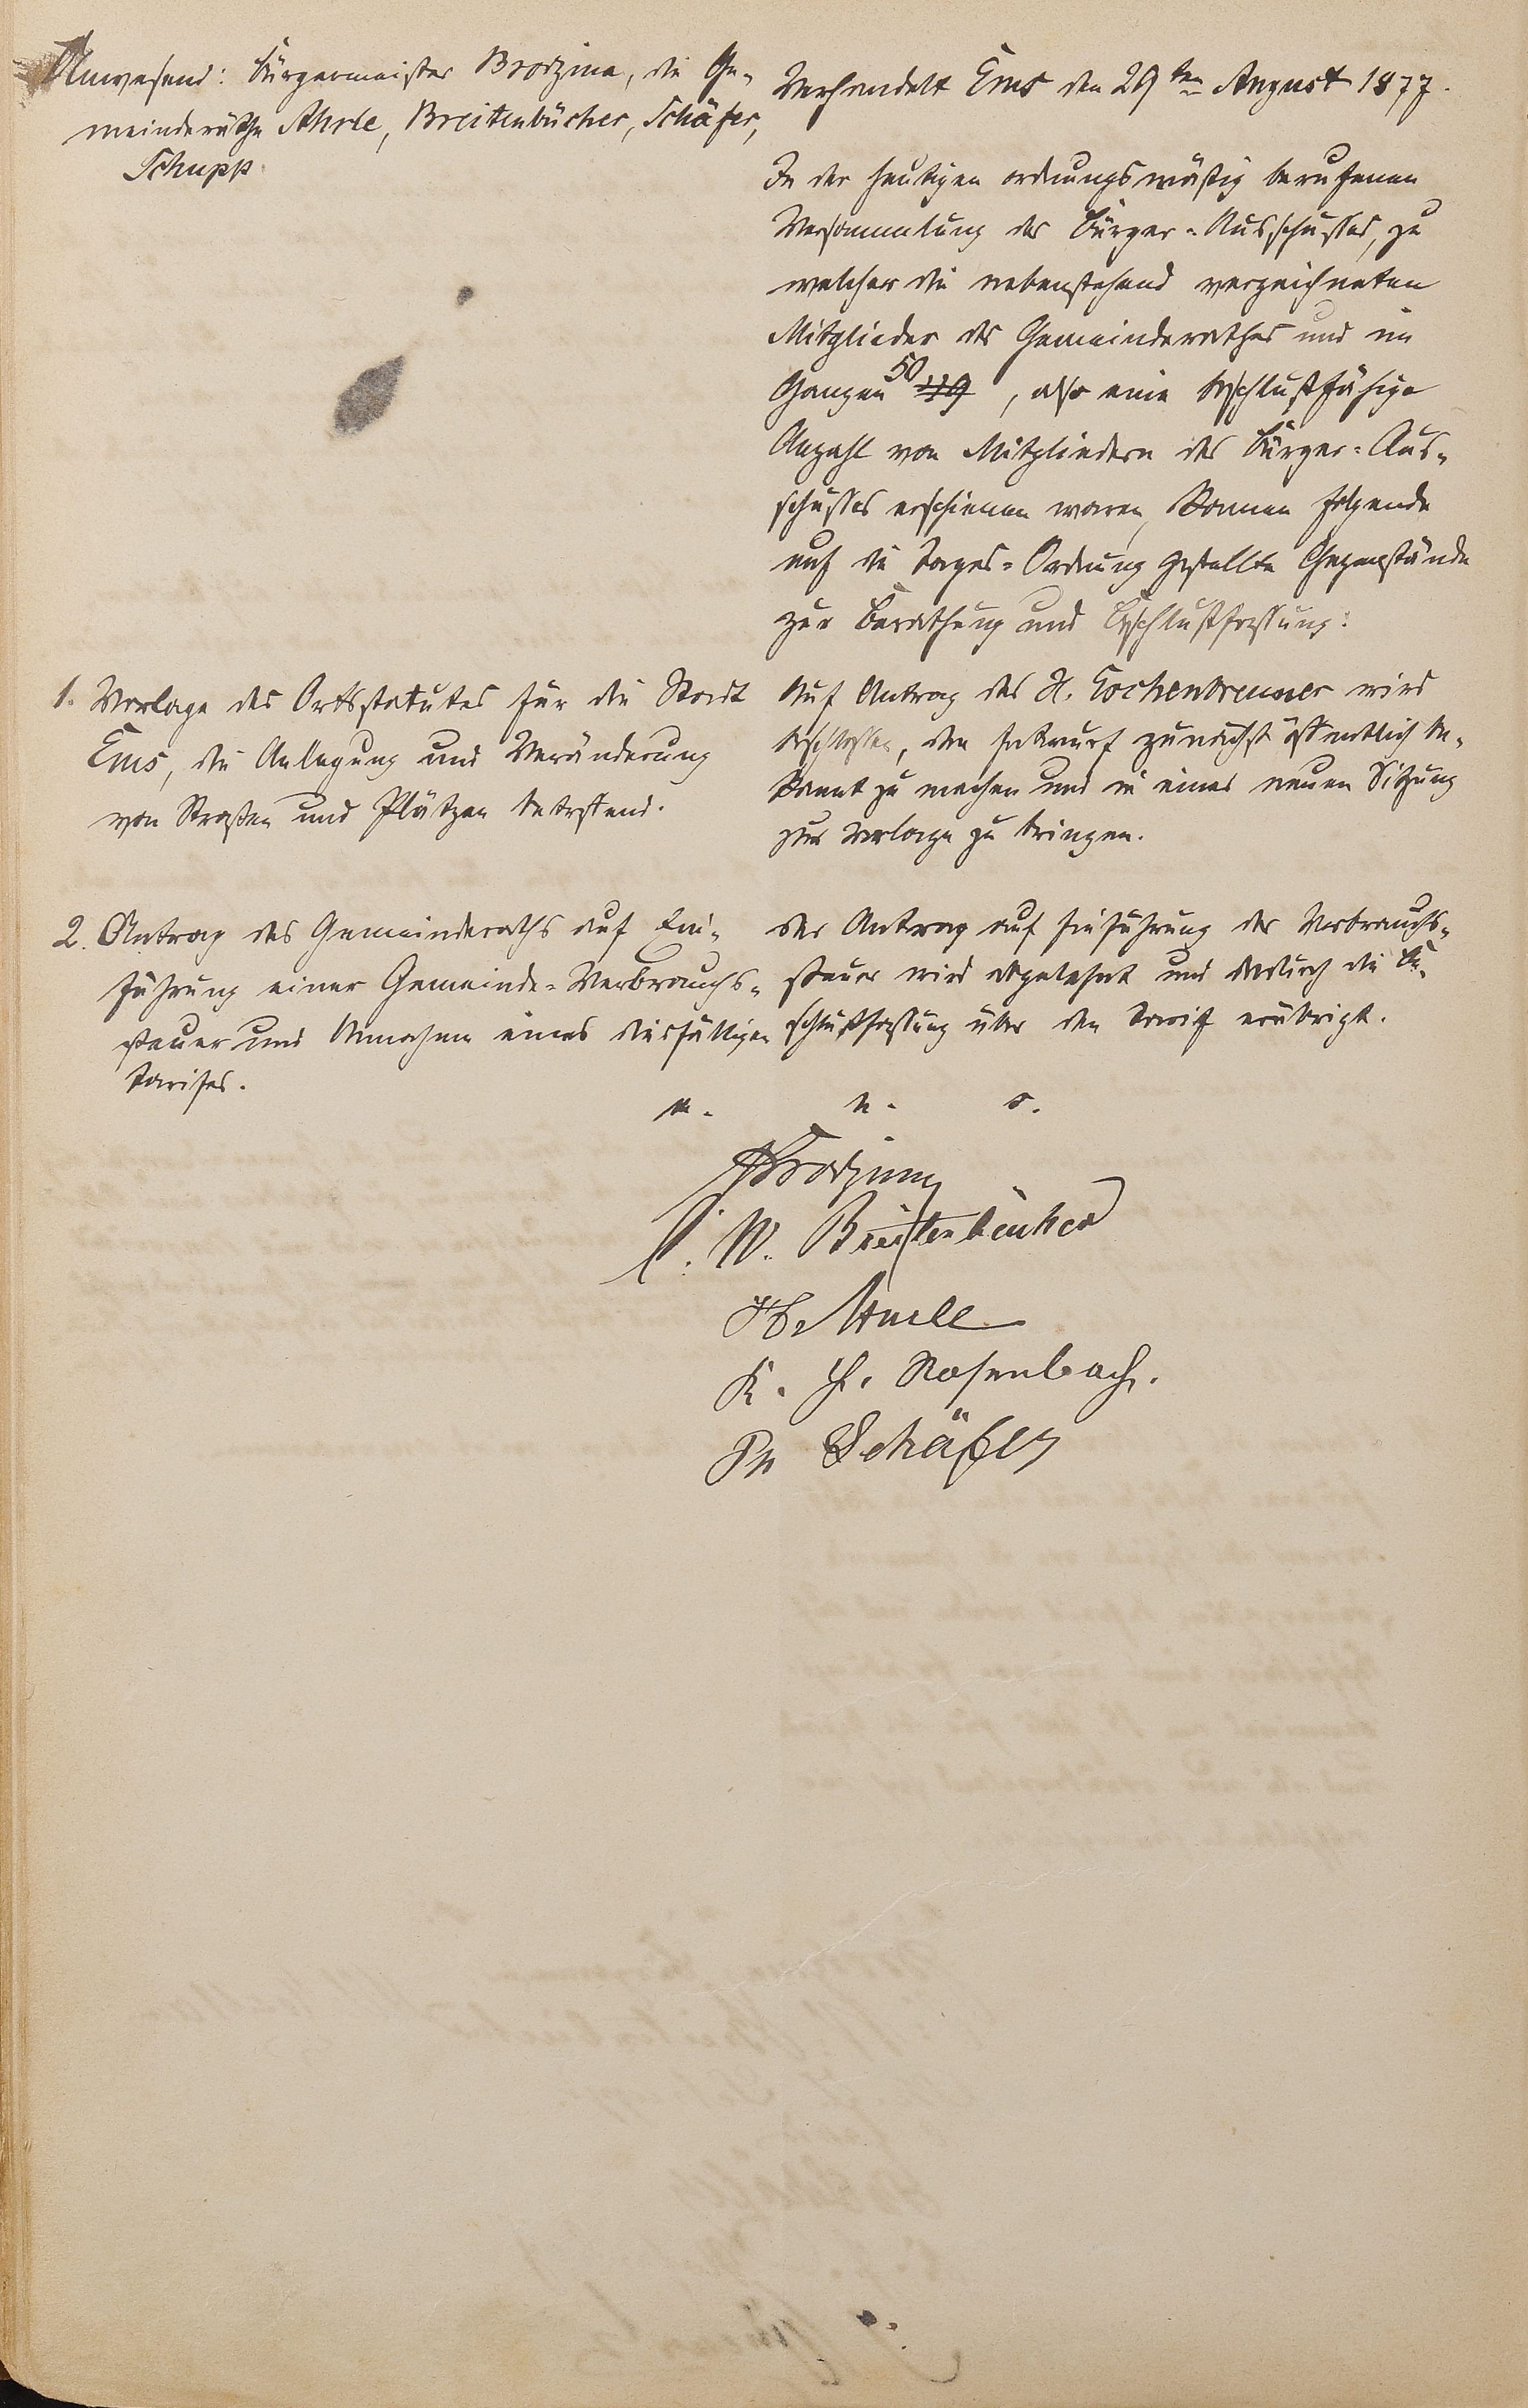 Anwesend: Bürgermeister Brodzina, die Ge-
meinderäthe Ahrle, Breitenbücher, Schäfer,
Schupp.
Verhandelt Ems den 29ten August 1877.
In der heutigen ordnungsmäßig berufenen
Versammlung des Bürger-Ausschusses, zu
welcher die nebenstehend verzeichneten
Mitglieder des Gemeinderathes und im
Ganzen 50, also eine beschlußfähige
Anzahl von Mitgliedern des Bürger-Aus-
schusses erschienen waren, kamen folgende
auf die Tages-Ordnung gestellte Gegenstände
zur Berathung und Beschlußfassung:
1. Vorlage des Ortsstatutes für die Stadt
Ems, die Anlegung und Veränderung
von Straßen und Plätzen betreffend.
Auf Antrag des H. Gochenbrenner wird
beschlossen, den Entwurf zunächst öffentlich be-
kannt zu machen und in einer neuen Sitzung
zur Vorlage zu bringen.
2. Antrag des Gemeinderaths auf Ein-
führung einer Gemeinde-Verbrauchs-
steuer und Annahme eines diesfälligen
Tarifes.
Der Antrag auf Einführung der Verbrauchs-
steuer wird abgelehnt und dadurch die Be-
schlußfassung über den Tarif erübrigt.
v. g. u.
Brodzina
C. W. Breitenbücher
K. H. Rosenbach.
Ph Schäfer